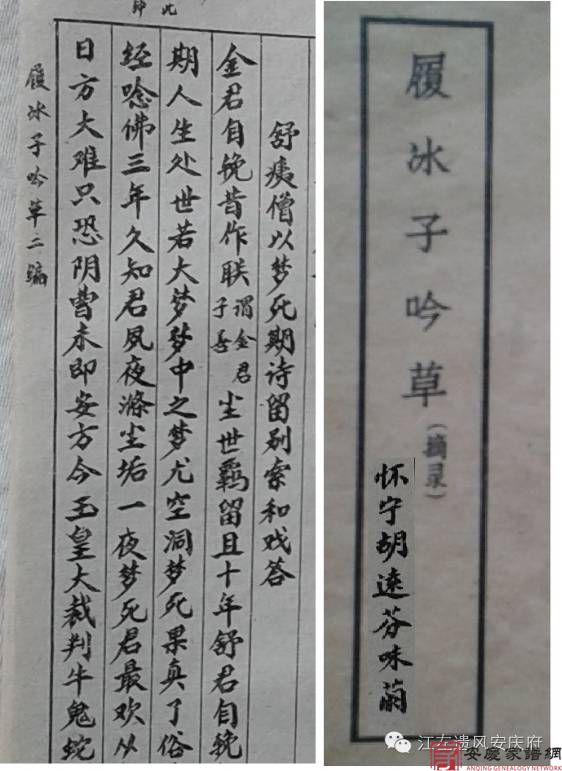 履冰子吟草
（摘录）
怀宁胡远芬味兰
舒痍僧以梦死期诗留别索和戏答
金君自挽昔作联谓金君子善尘世羁留且十年舒君自挽
期人生处世若大梦梦中之梦尤空洞梦死果真了俗
经唸佛三年久知君夙夜滌尘垢一夜梦死君最欢从
日方大难只恐阴曹未即安方今玉皇大裁判牛鬼蛇
履冰子吟草二编
江左遗风安庆府
安慶家譜網
ANQING GENEALOGY NETWORK